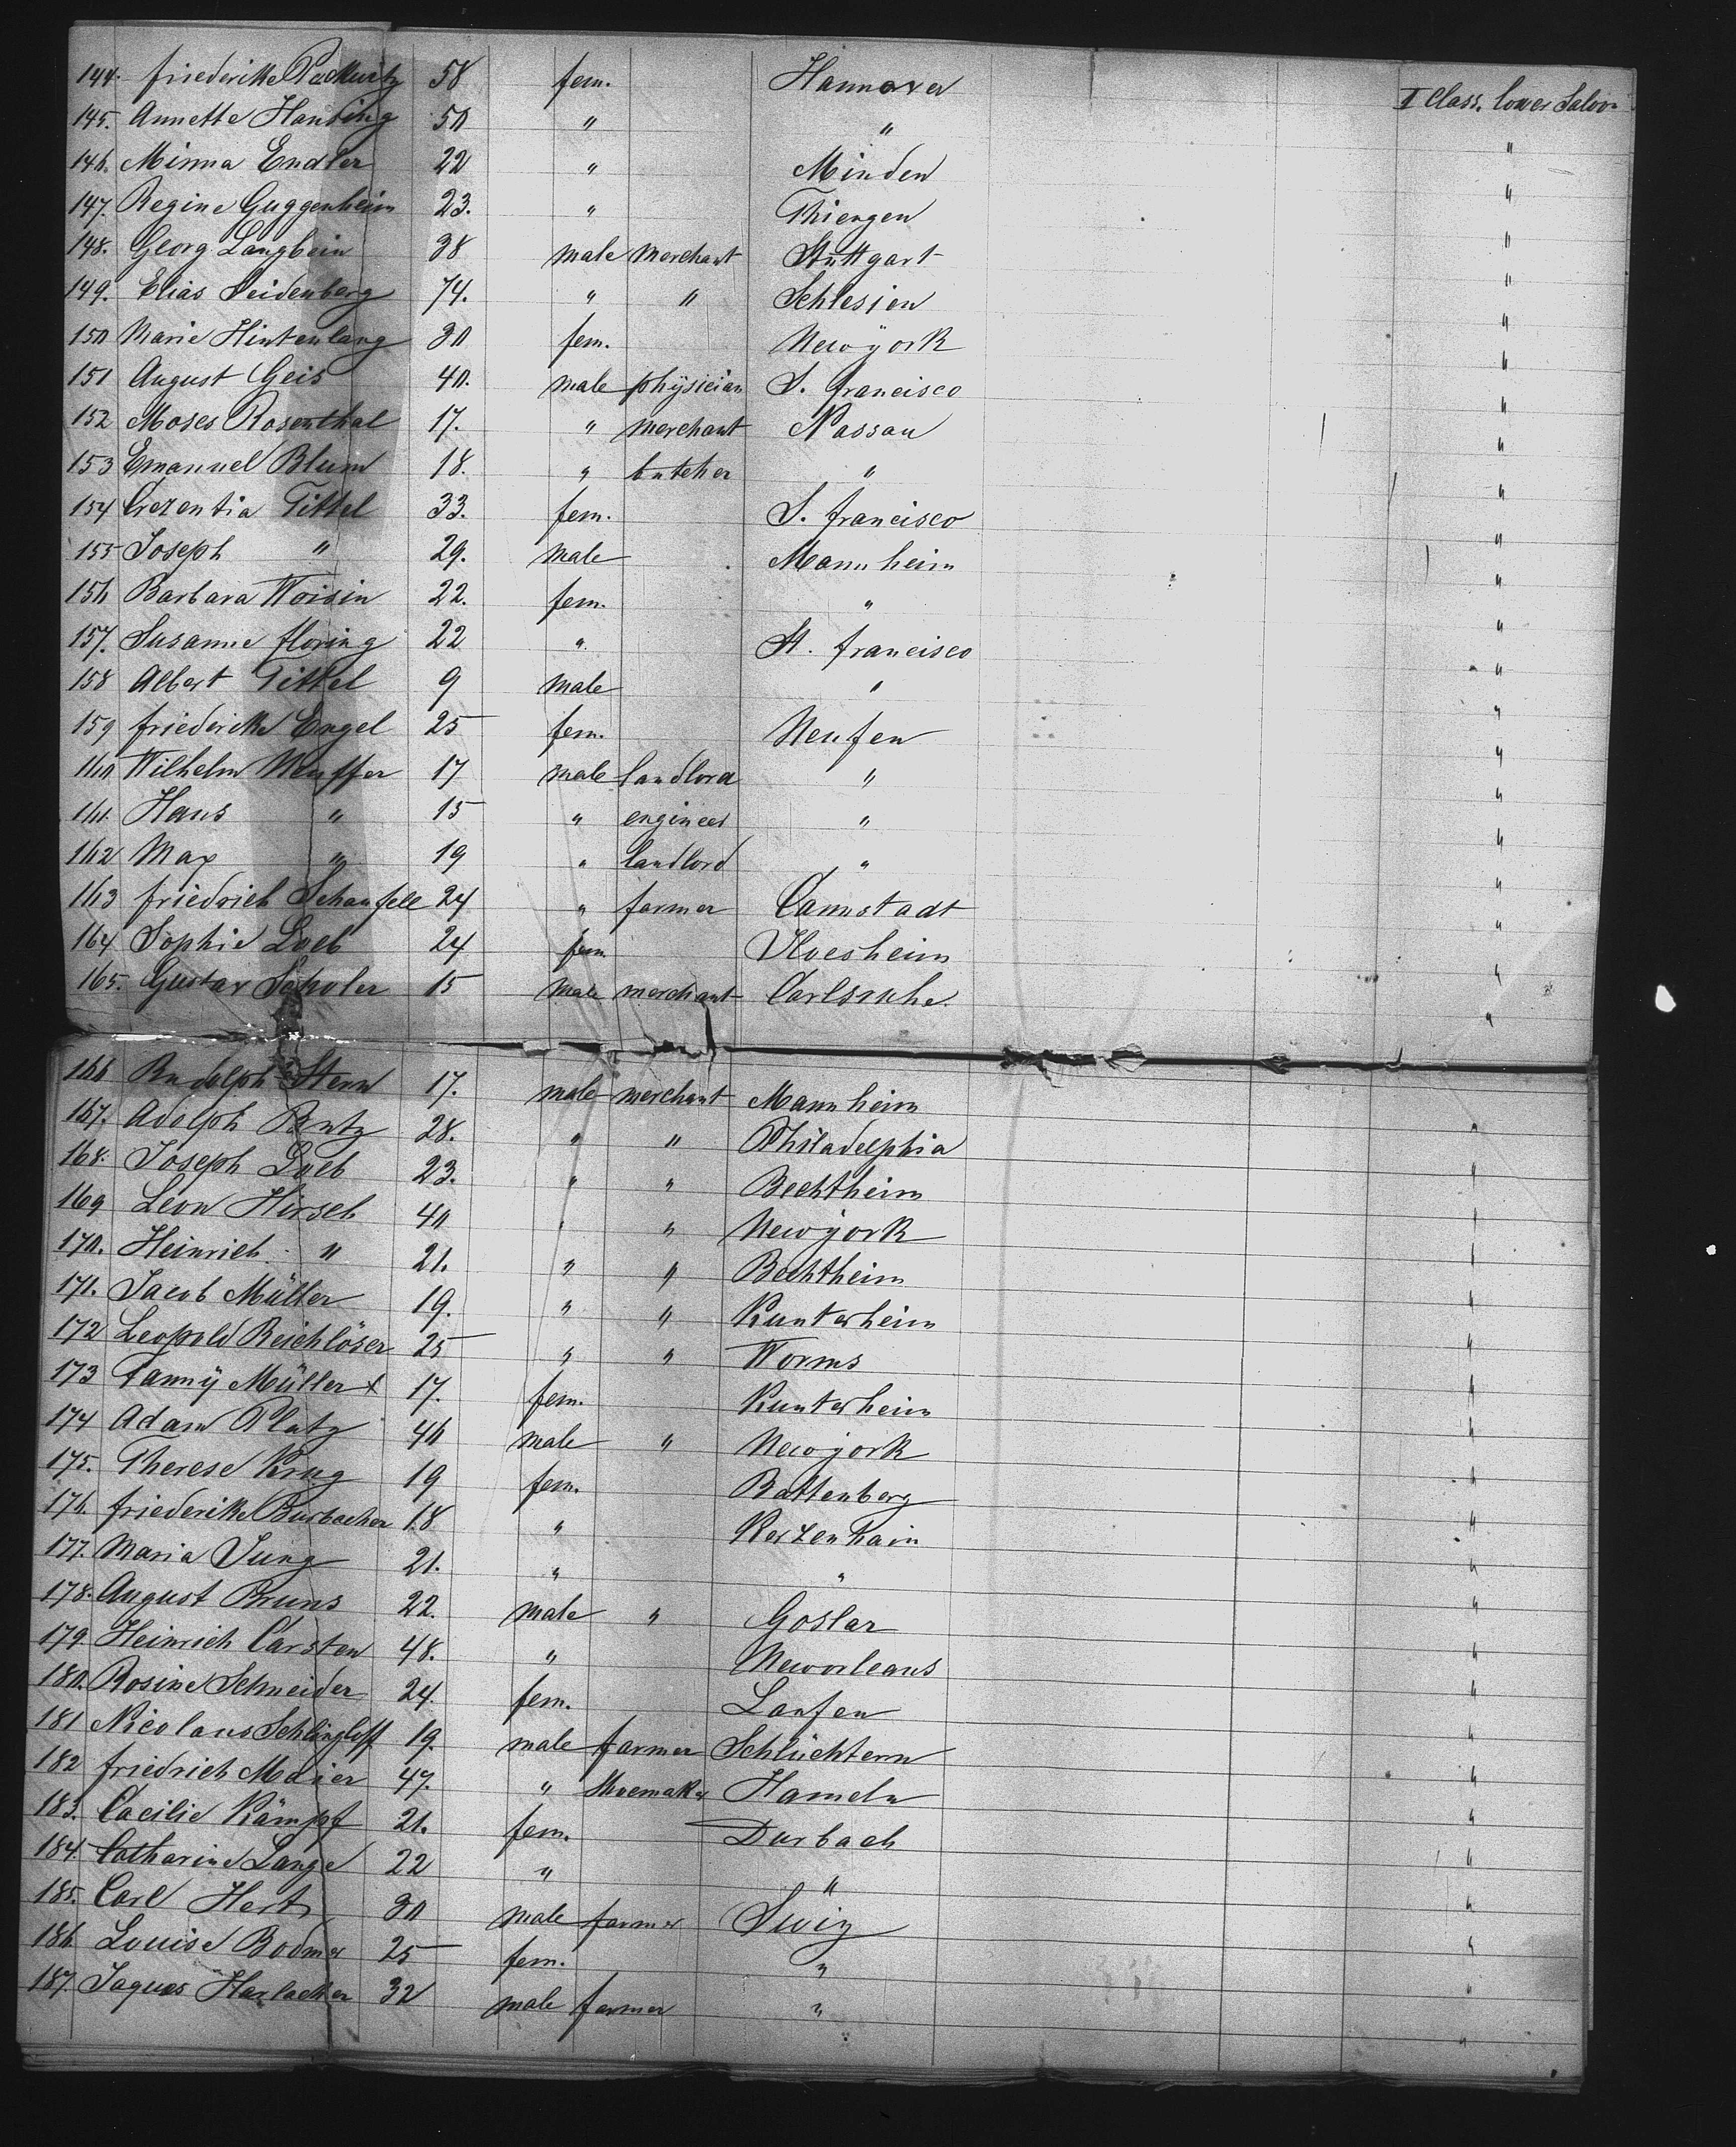 144. friederike Packwitz 58 fem. Hannover I Class. lower Saloon
145. Annette Hansing 50 " " "
146. Minna Endler 22 " Minden "
147. Regine Guggenheim 23. " Thiengen "
148. Georg Langbein 38 male merchant Stuttgart "
149. Elias Seidenberg 74. " " Schlesien "
150 Marie Hintenlang 30 fem. Newyork "
151 August Geis 40. male physician S. francisco "
152 Moses Rosenthal 17. " merchant Nassau "
153 Emanuel Blum 18. " butcher " "
154 Crezentia Tittel 33. fem. S. francisco "
155 Joseph " 29. male Mannheim "
156 Barbara Woisin 22. fem. " "
157. Susanne floring 22 " St. francisco "
158 Albert Tittel 9 male " "
159 friederike Engel 25 fem. Neufen "
160 Wilhelm Neuffer 17 male landlord " "
161. Hans " 15 " engineer " "
162 Max " 19 " landlord " "
163 friedrich Schaufele 24 " farmer Cannstadt "
164 Sophie Loeb 24 fem. Ilvesheim "
165. Gustav Scholer 15 male merchant Carlsruhe "
166 Rudolph Stern 17. male merchant Mannheim "
167. Adolph Butz 28. " " Philadelphia "
168. Joseph Loeb 23. " " Bechtheim "
169 Leon Hirsch 40 " " Newyork "
170. Heinrich " 21. " " Bechtheim "
171. Jacob Müller 19. " " Kunterheim "
172 Leopold Reichlöser 25 " " Worms "
173 Fanny Müller x 17. fem. Kunterheim "
174 Adam Platz 40 male " Newyork "
175. Therese Krug 19 fem. Battenberg "
176. friederike Burbacher 18 " Kerzenhain "
177. Maria Jung 21. " " "
178. August Bruns 22. male " Goslar "
179. Heinrich Carsten 48. " Neworleans "
180. Rosine Schneider 24. fem. Laufen "
181 Nicolaus Schlingloff 19. male farmer Schlüchtern "
182 friedrich Maier 47. " Shoemaker Hameln "
183. Caecilie Kämpf 21. fem. Durbach "
184. Catharine Lange 22 " " "
185. Carl Hertz 30 male farmer Swiz "
186. Louise Bodmer 25 fem. " "
187. Jaques Harlacker 32 male farmer " "